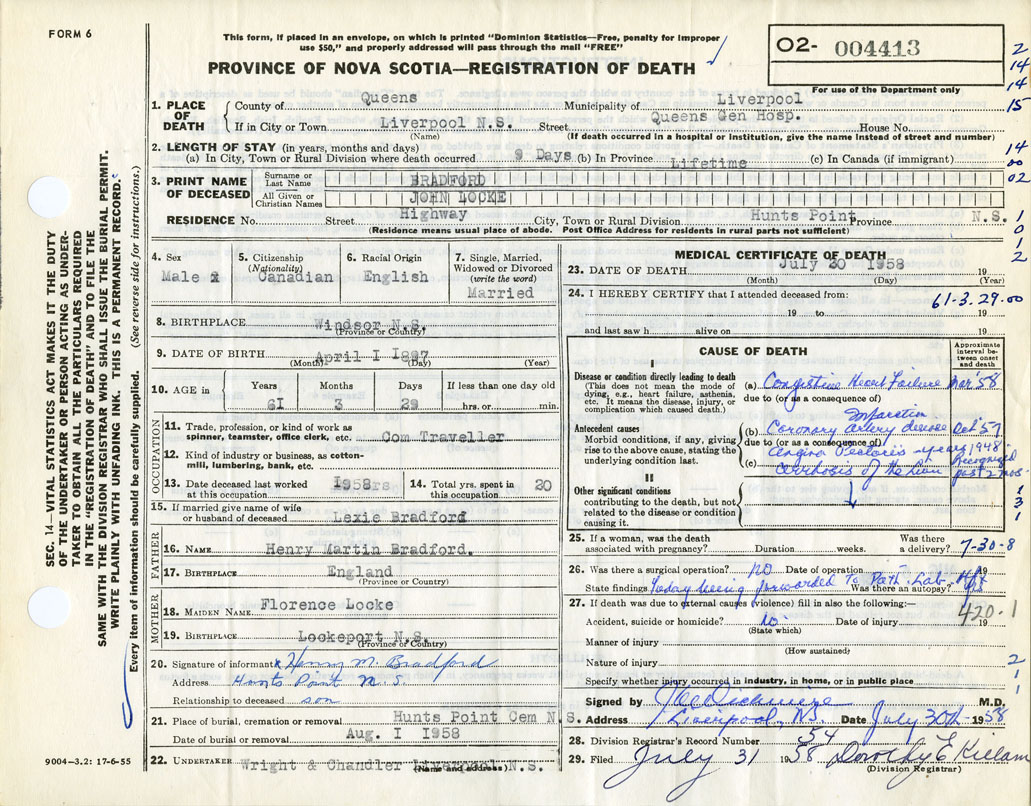 FORM 6
This form, if placed in an envelope, on which is printed "Dominion Statistics—Free, penalty for improper
use $50," and properly addressed will pass through the mail "FREE"
PROVINCE OF NOVA SCOTIA—REGISTRATION OF DEATH
02- 004413
For use of the Department only
2
14
14
15
14
00
02
1
0
1
2
SEC. 14—VITAL STATISTICS ACT MAKES IT THE DUTY
OF THE UNDERTAKER OR PERSON ACTING AS UNDER-
TAKER TO OBTAIN ALL THE PARTICULARS REQUIRED
IN THE "REGISTRATION OF DEATH" AND TO FILE THE
SAME WITH THE DIVISION REGISTRAR WHO SHALL ISSUE THE BURIAL PERMIT.
WRITE PLAINLY WITH UNFADING INK. THIS IS A PERMANENT RECORD.
Every item of information should be carefully supplied. (See reverse side for instructions.)
1. PLACE OF DEATH
County of Queens Municipality of Liverpool
If in City or Town Liverpool N.S. Street Queens Gen Hosp. House No.
(Name) (If death occurred in a hospital or institution, give the name instead of street and number)
2. LENGTH OF STAY (in years, months and days)
(a) In City, Town or Rural Division where death occurred 9 Days (b) In Province Lifetime (c) In Canada (if immigrant)
3. PRINT NAME OF DECEASED
Surname or Last Name BRADFORD
All Given or Christian Names JOHN LOCKE
RESIDENCE No. Street Highway City, Town or Rural Division Hunts Point Province N.S.
(Residence means usual place of abode. Post Office Address for residents in rural parts not sufficient)
4. Sex
Male x
5. Citizenship
(Nationality)
Canadian
6. Racial Origin
English
7. Single, Married,
Widowed or Divorced
(write the word)
Married
8. BIRTHPLACE Windsor N.S.
(Province or Country)
9. DATE OF BIRTH April I 1897
(Month) (Day) (Year)
10. AGE in
Years Months Days If less than one day old
61 3 29 hrs. or min.
OCCUPATION
11. Trade, profession, or kind of work as
spinner, teamster, office clerk, etc. Com Traveller
12. Kind of industry or business, as cotton-
mill, lumbering, bank, etc.
13. Date deceased last worked
at this occupation 1958rs
14. Total yrs. spent in
this occupation 20
15. If married give name of wife
or husband of deceased Lexie Bradford
FATHER
16. NAME Henry Martin Bradford.
17. BIRTHPLACE England
(Province or Country)
MOTHER
18. MAIDEN NAME Florence Locke
19. BIRTHPLACE Lockeport N.S.
(Province or Country)
20. Signature of informant x Henry M. Bradford
Address Hunts Point N.S.
Relationship to deceased son
21. Place of burial, cremation or removal Hunts Point Cem N.S.
Date of burial or removal Aug. I 1958
22. UNDERTAKER Wright & Chandler Liverpool N.S.
(Name and address)
9004—3.2: 17-6-55
MEDICAL CERTIFICATE OF DEATH
23. DATE OF DEATH July 20 1958 19
(Month) (Day) (Year)
24. I HEREBY CERTIFY that I attended deceased from:
61-3.29-00
19 to 19
and last saw h alive on 19
CAUSE OF DEATH
Approximate
interval be-
tween onset
and death
I
Disease or condition directly leading to death
(This does not mean the mode of
dying, e.g., heart failure, asthenia,
etc. It means the disease, injury, or
complication which caused death.)
(a) Congestive Heart Failure Mar 58
due to (or as a consequence of)
Infarction
Antecedent causes
Morbid conditions, if any, giving
rise to the above cause, stating the
underlying condition last.
(b) Coronary artery disease Oct 57
due to (or as a consequence of)
Angina Pectoris - years 1948
(c) Cirrhosis of the Liver recognized past 2 mos.
II
Other significant conditions
contributing to the death, but not
related to the disease or condition
causing it.
1
3
1
25. If a woman, was the death
associated with pregnancy? Duration weeks. Was there
a delivery? 7-30-8
26. Was there a surgical operation? no Date of operation 19
State findings Today being forwarded to Path. Lab. Was there an autopsy?
27. If death was due to external causes (violence) fill in also the following:—
420.1
Accident, suicide or homicide? no Date of injury 19
(State which)
Manner of injury
(How sustained)
Nature of injury
Specify whether injury occurred in industry, in home, or in public place
2
1
1
Signed by M.D.
Address Liverpool, N.S. Date July 30th 1958
28. Division Registrar's Record Number 54
29. Filed July 31 1958 Dorothy E Killam
(Division Registrar)